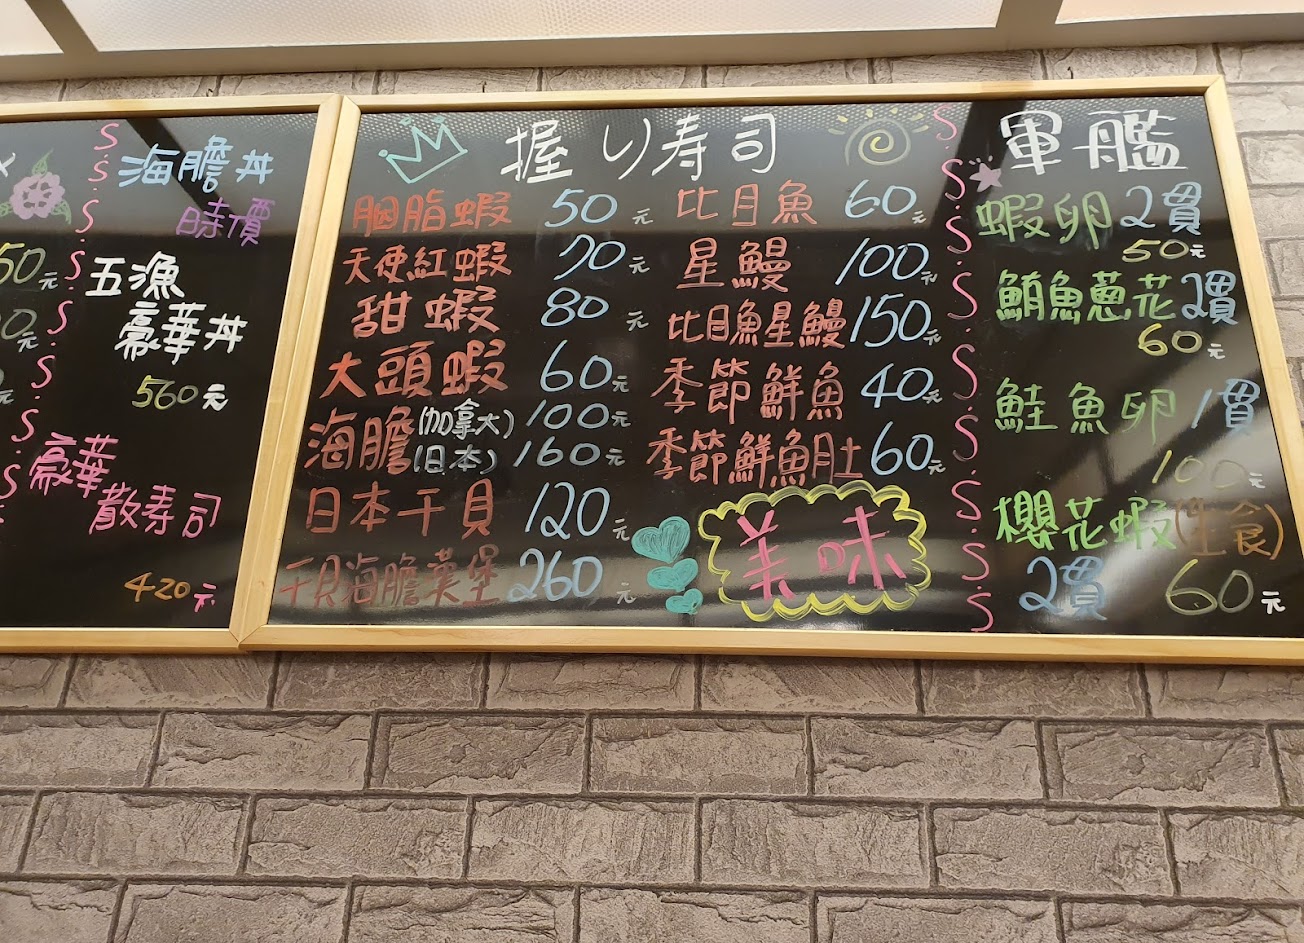 海膽丼
時價
50元
五漁
豪華丼
560元
豪華
散寿司
420元
握り寿司
胭脂蝦 50元
天使紅蝦 70元
甜蝦 80元
大頭蝦 60元
海膽(加拿大) 100元
(日本) 160元
日本干貝 120元
干貝海膽漢堡 260元
比目魚 60元
星鰻 100元
比目魚星鰻 150元
季節鮮魚 40元
季節鮮魚肚 60元
美味
軍艦
蝦卵 2貫
50元
鮪魚蔥花 2貫
60元
鮭魚卵 1貫
100元
櫻花蝦(生食)
2貫 60元